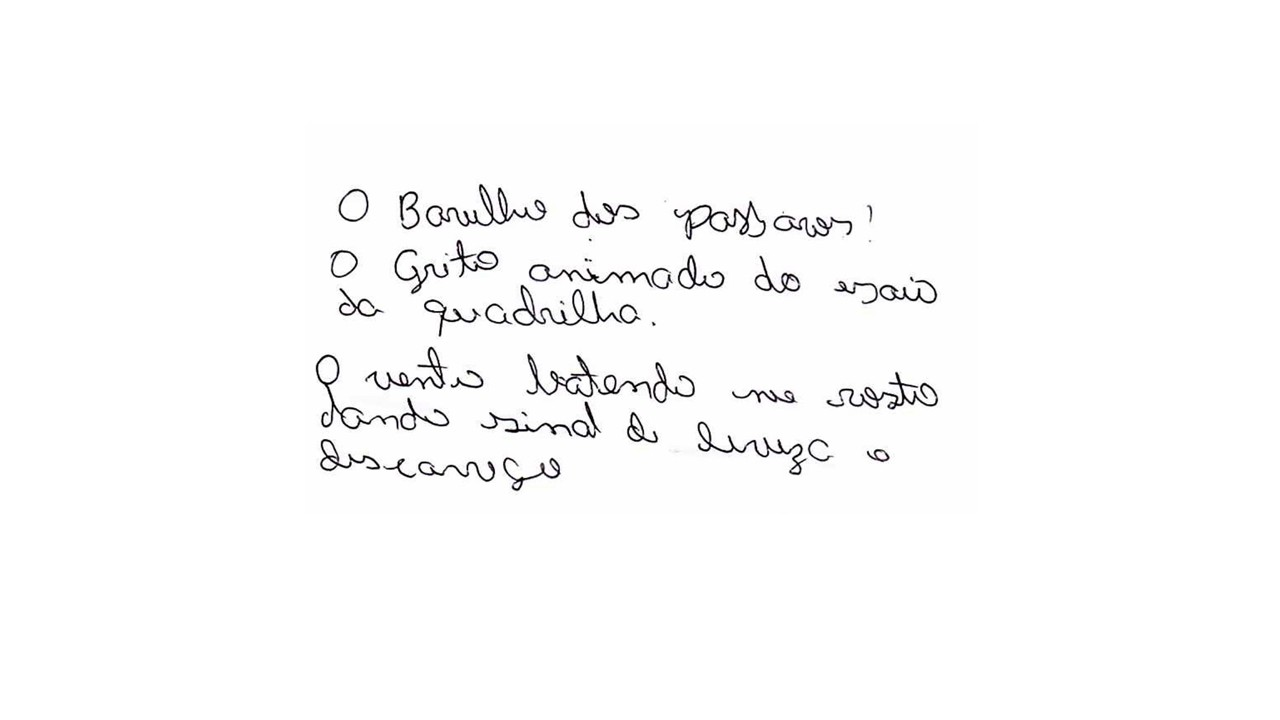 O Barulho dos passaros!
O Grito animado do esaio
da quadrilha.
O vento batendo no rosto
dando sinal de leveza e
descanço